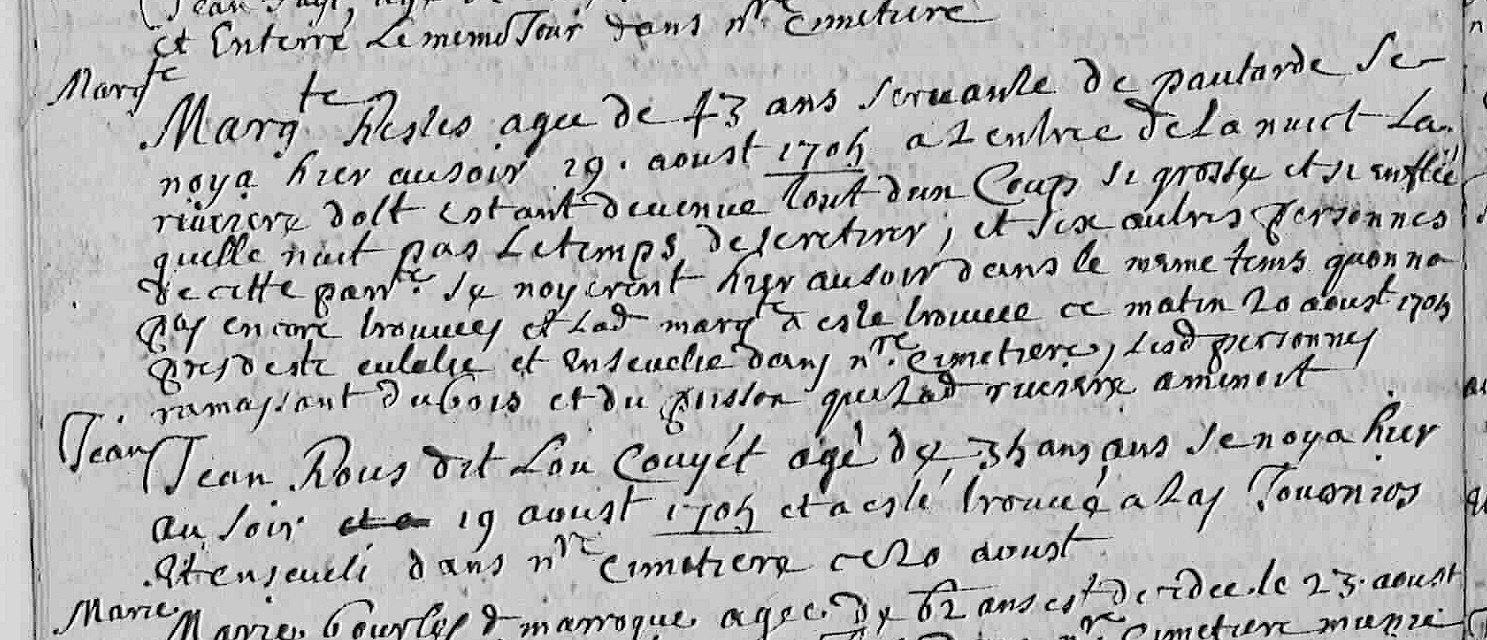 et Enterré Le meme Jour dans nre Cimetiere
Margte
Margte agee de 43 ans servante de paularde se
noya hier au soir 29. aoust 1705 a L entree de La nuict La
riuiere dolt estant deuenue tout dun Coup si grosse et si enflée
quelle neut pas Le temps, de se retirer, et six autres personnes
de cette parrse se noyerent hier au soir dans le meme tems quon na
pas encore trouuées et Lad margte a esté trouuee ce matin 20 aoust 1705
pres de ste eulalie et Enseuelie dans nre Cimetiere, Lesd personnes
ramassant du bois et du poisson que Lad riuiere amenoit
Jean
Jean Rous dit Lou Couyét agé de 35 ans ans se noya hier
au soir et a 19 aoust 1705 et a esté trouué a Las
Et enseueli dans nre Cimetiere ce 20 aoust
Marie
Marie d marroque agee de 62 ans est decedee le 23 aoust
Cimetiere